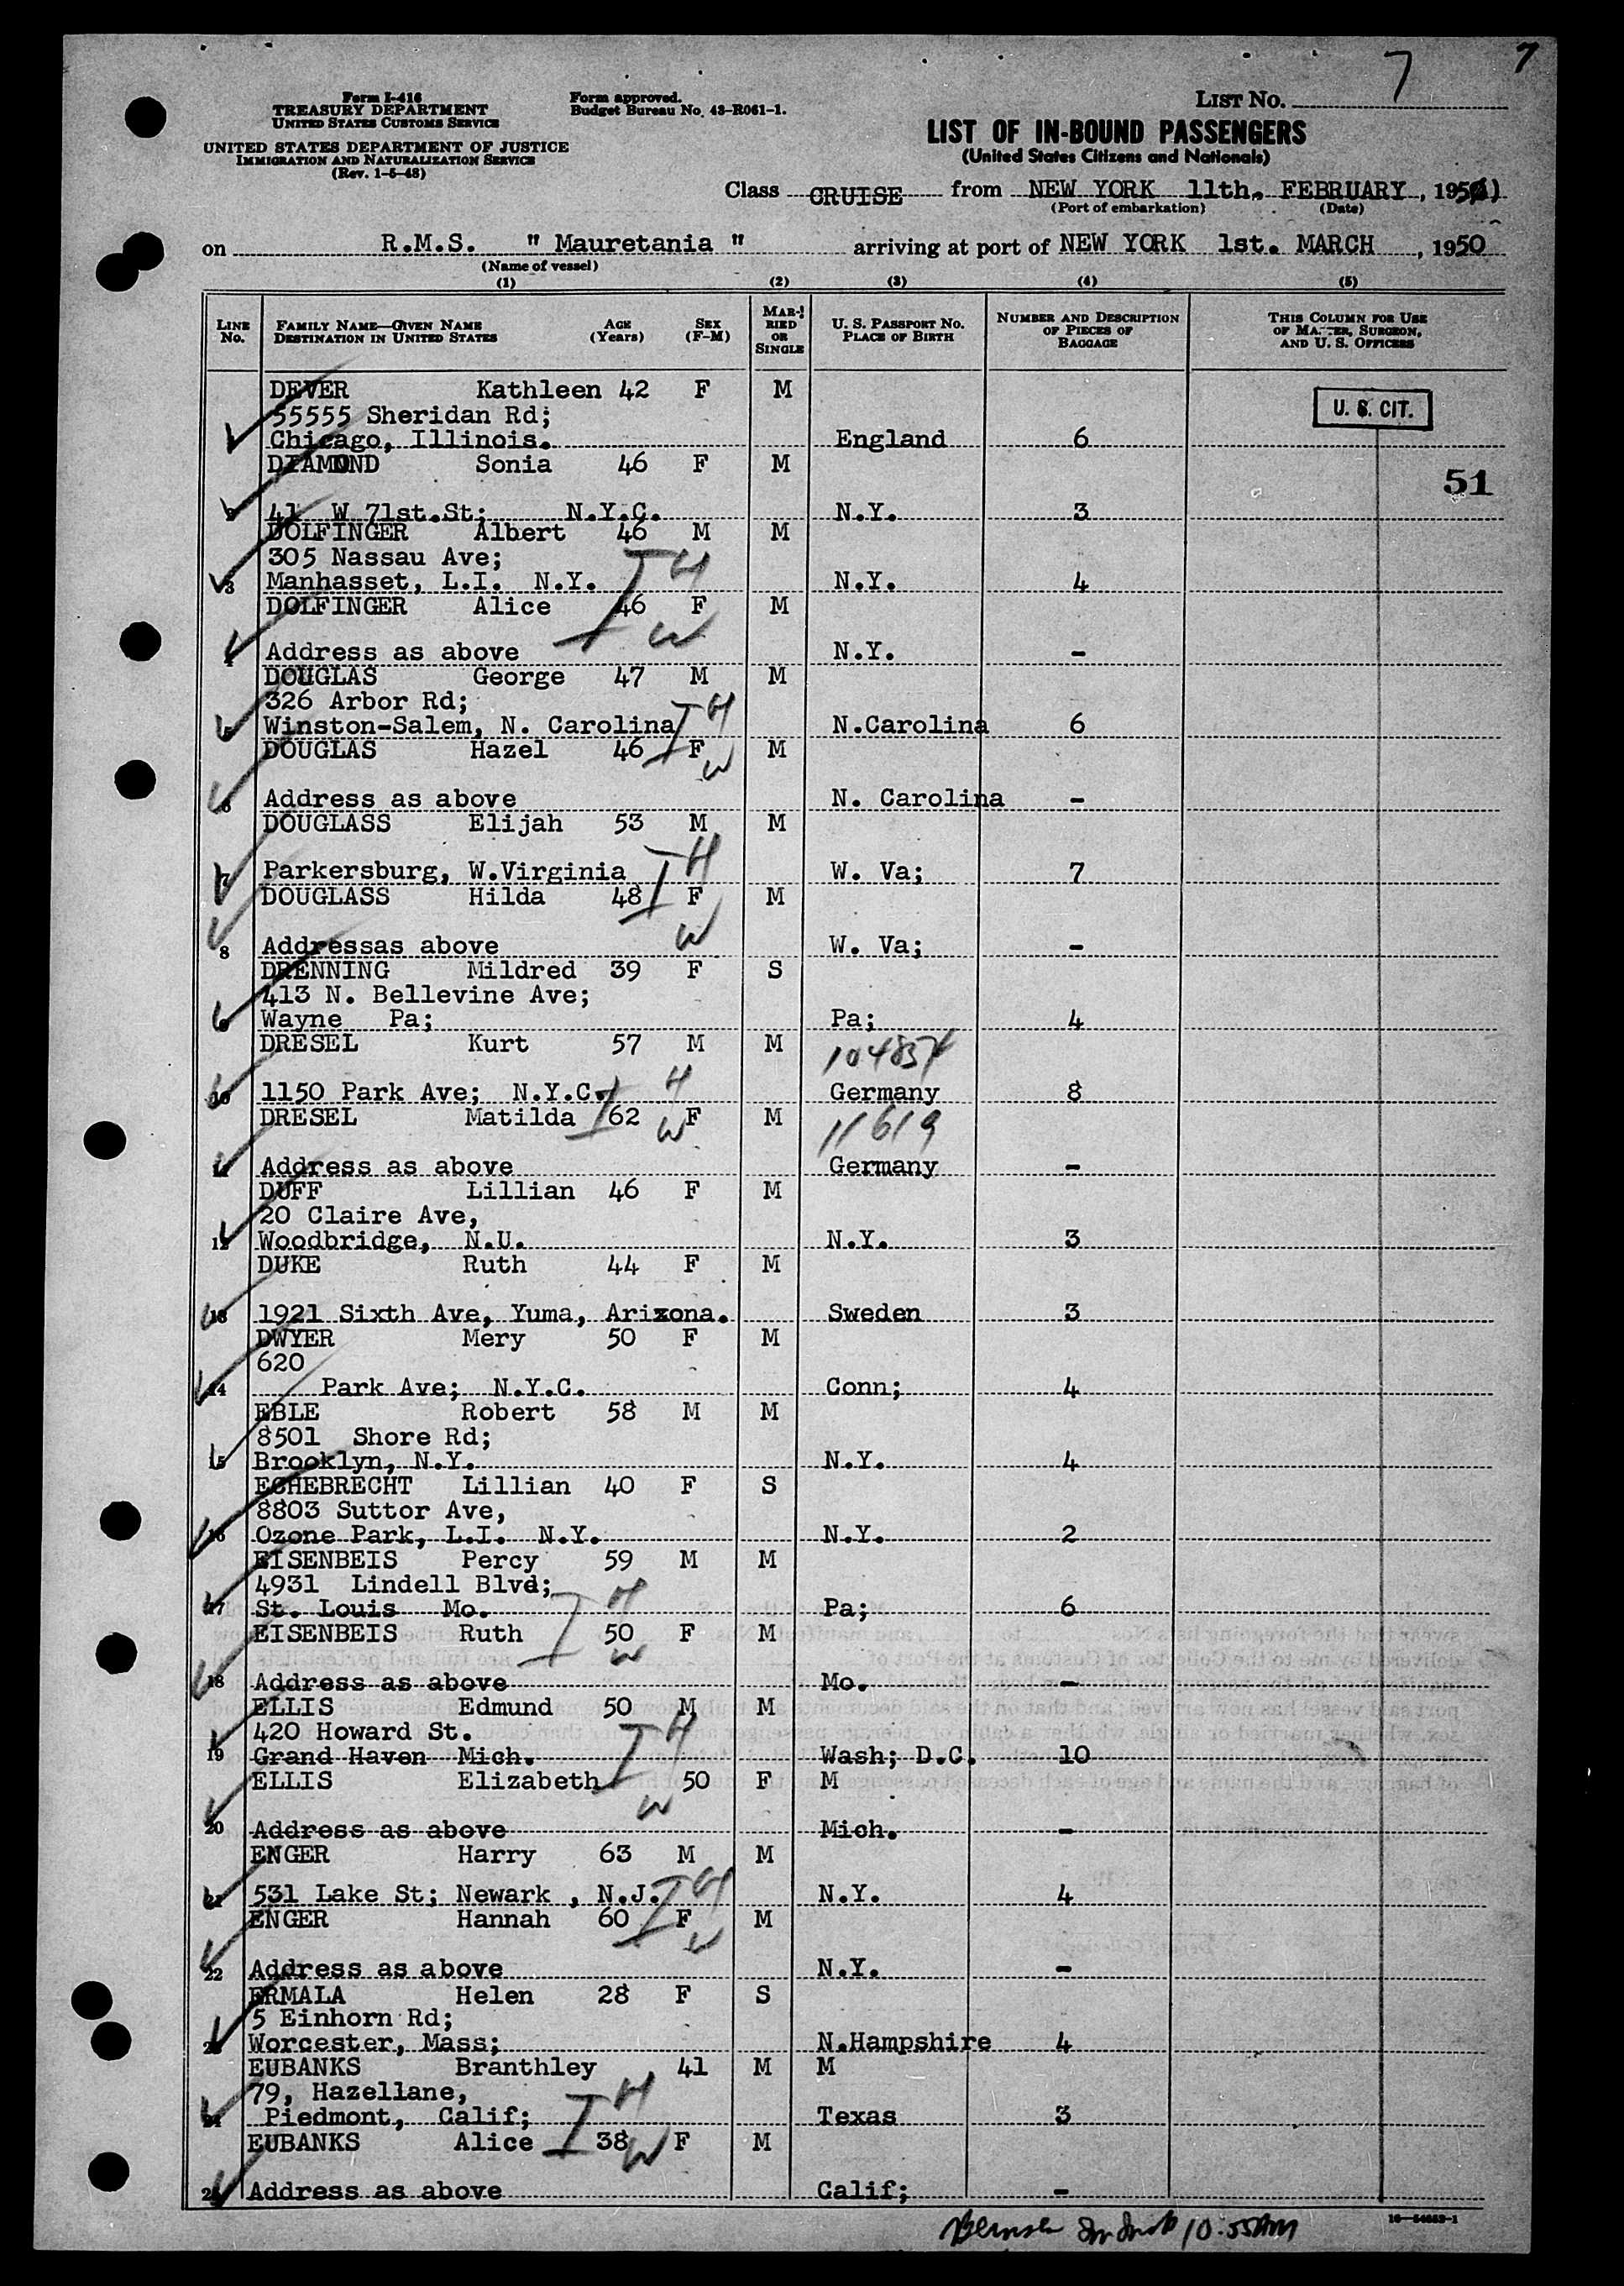 7
7
Form I-416
TREASURY DEPARTMENT
UNITED STATES CUSTOMS SERVICE
UNITED STATES DEPARTMENT OF JUSTICE
IMMIGRATION AND NATURALIZATION SERVICE
(Rev. 1-5-48)
Form approved.
Budget Bureau No. 43-R061-1.
LIST No.
LIST OF IN-BOUND PASSENGERS
(United States Citizens and Nationals)
Class CRUISE from NEW YORK 11th, FEBRUARY, 1950)
(Port of embarkation) (Date)
on R.M.S. " Mauretania " arriving at port of NEW YORK 1st. MARCH, 1950
(Name of vessel)
(1) (2) (3) (4) (5)
LINE No. FAMILY NAME—GIVEN NAME DESTINATION IN UNITED STATES AGE (Years) SEX (F-M) MARRIED OR SINGLE U. S. PASSPORT NO. PLACE OF BIRTH NUMBER AND DESCRIPTION OF PIECES OF BAGGAGE THIS COLUMN FOR USE OF MASTER, SURGEON, AND U. S. OFFICERS
DEVER Kathleen 42 F M
U. S. CIT.
55555 Sheridan Rd;
Chicago, Illinois. England 6
DIAMOND Sonia 46 F M
51
2 41 W 71st.St; N.Y.C. N.Y. 3
DOLFINGER Albert 46 M M
305 Nassau Ave;
3 Manhasset, L.I. N.Y. N.Y. 4
H
DOLFINGER Alice 46 F M
W
4 Address as above N.Y. -
DOUGLAS George 47 M M
326 Arbor Rd;
5 Winston-Salem, N. Carolina N.Carolina 6
H
DOUGLAS Hazel 46 F M
W
6 Address as above N. Carolina -
DOUGLASS Elijah 53 M M
H
7 Parkersburg, W.Virginia W. Va; 7
DOUGLASS Hilda 48 F M
W
8 Addressas above W. Va; -
DRENNING Mildred 39 F S
413 N. Bellevine Ave;
9 Wayne Pa; Pa; 4
DRESEL Kurt 57 M M
H
10 1150 Park Ave; N.Y.C. Germany 8
DRESEL Matilda 62 F M
W 11619
11 Address as above Germany -
DUFF Lillian 46 F M
20 Claire Ave,
12 Woodbridge, N.U. N.Y. 3
DUKE Ruth 44 F M
13 1921 Sixth Ave, Yuma, Arizona. Sweden 3
DWYER Mery 50 F M
620
14 Park Ave; N.Y.C. Conn; 4
EBLE Robert 58 M M
8501 Shore Rd;
15 Brooklyn, N.Y. N.Y. 4
ECHEBRECHT Lillian 40 F S
8803 Suttor Ave,
16 Ozone Park, L.I. N.Y. N.Y. 2
EISENBEIS Percy 59 M M
4931 Lindell Blvd;
17 St. Louis Mo. Pa; 6
H
EISENBEIS Ruth 50 F M
W
18 Address as above Mo. -
ELLIS Edmund 50 M M
420 Howard St.
H
19 Grand Haven Mich. Wash; D.C. 10
ELLIS Elizabeth 50 F M
W
20 Address as above Mich. -
ENGER Harry 63 M M
H
21 531 Lake St; Newark , N.J. N.Y. 4
ENGER Hannah 60 F M
W
22 Address as above N.Y. -
ERMALA Helen 28 F S
5 Einhorn Rd;
23 Worcester, Mass; N.Hampshire 4
EUBANKS Branthley 41 M M
79, Hazellane,
H
24 Piedmont, Calif; Texas 3
EUBANKS Alice 38 F M
W
25 Address as above Calif; -
10:55AM